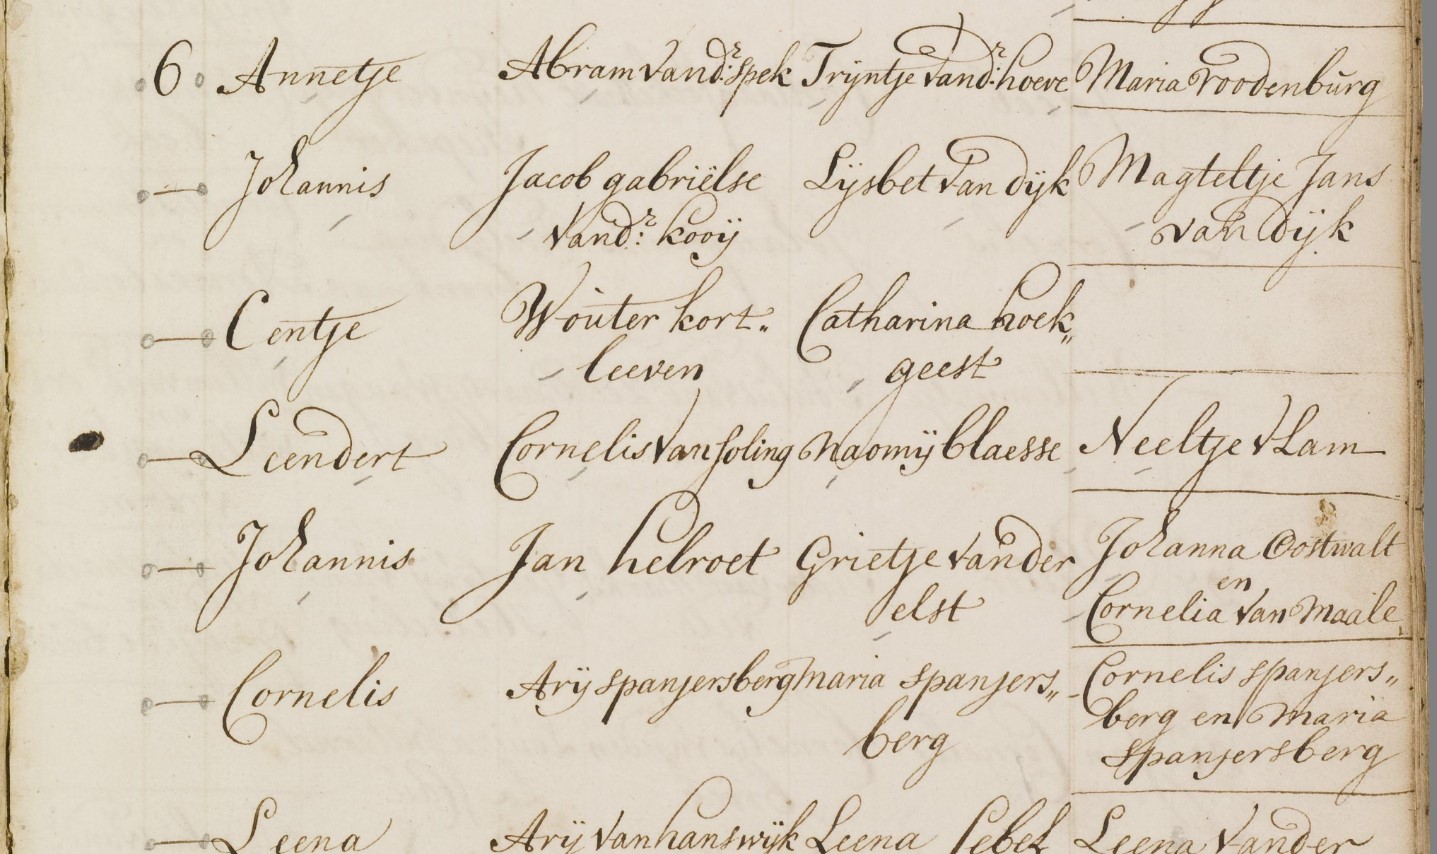 6 Annetje Abram Vand:r spek Tryntje Vand:r hoeve Maria roodenbŭrg
— Johannis Jacob gabriëlse Lijsbet Van dijk Magteltje Jans
Vand:r kooij van dijk
— Centje Woŭter kort„ Catharina hoek„
leeven geest
— Leendert Cornelis Van soling Naomij blaesse Neeltje V Lam
— Johannis Jan helroet Grietje Vander Johanna Oostwalt
en
elst Cornelia Van Maale
— Cornelis Arij spanjersberg Maria spanjers„ Cornelis spanjers„
berg berg en Maria
spanjersberg
— Leena Arij Van hanswijk Leena Leena Vander